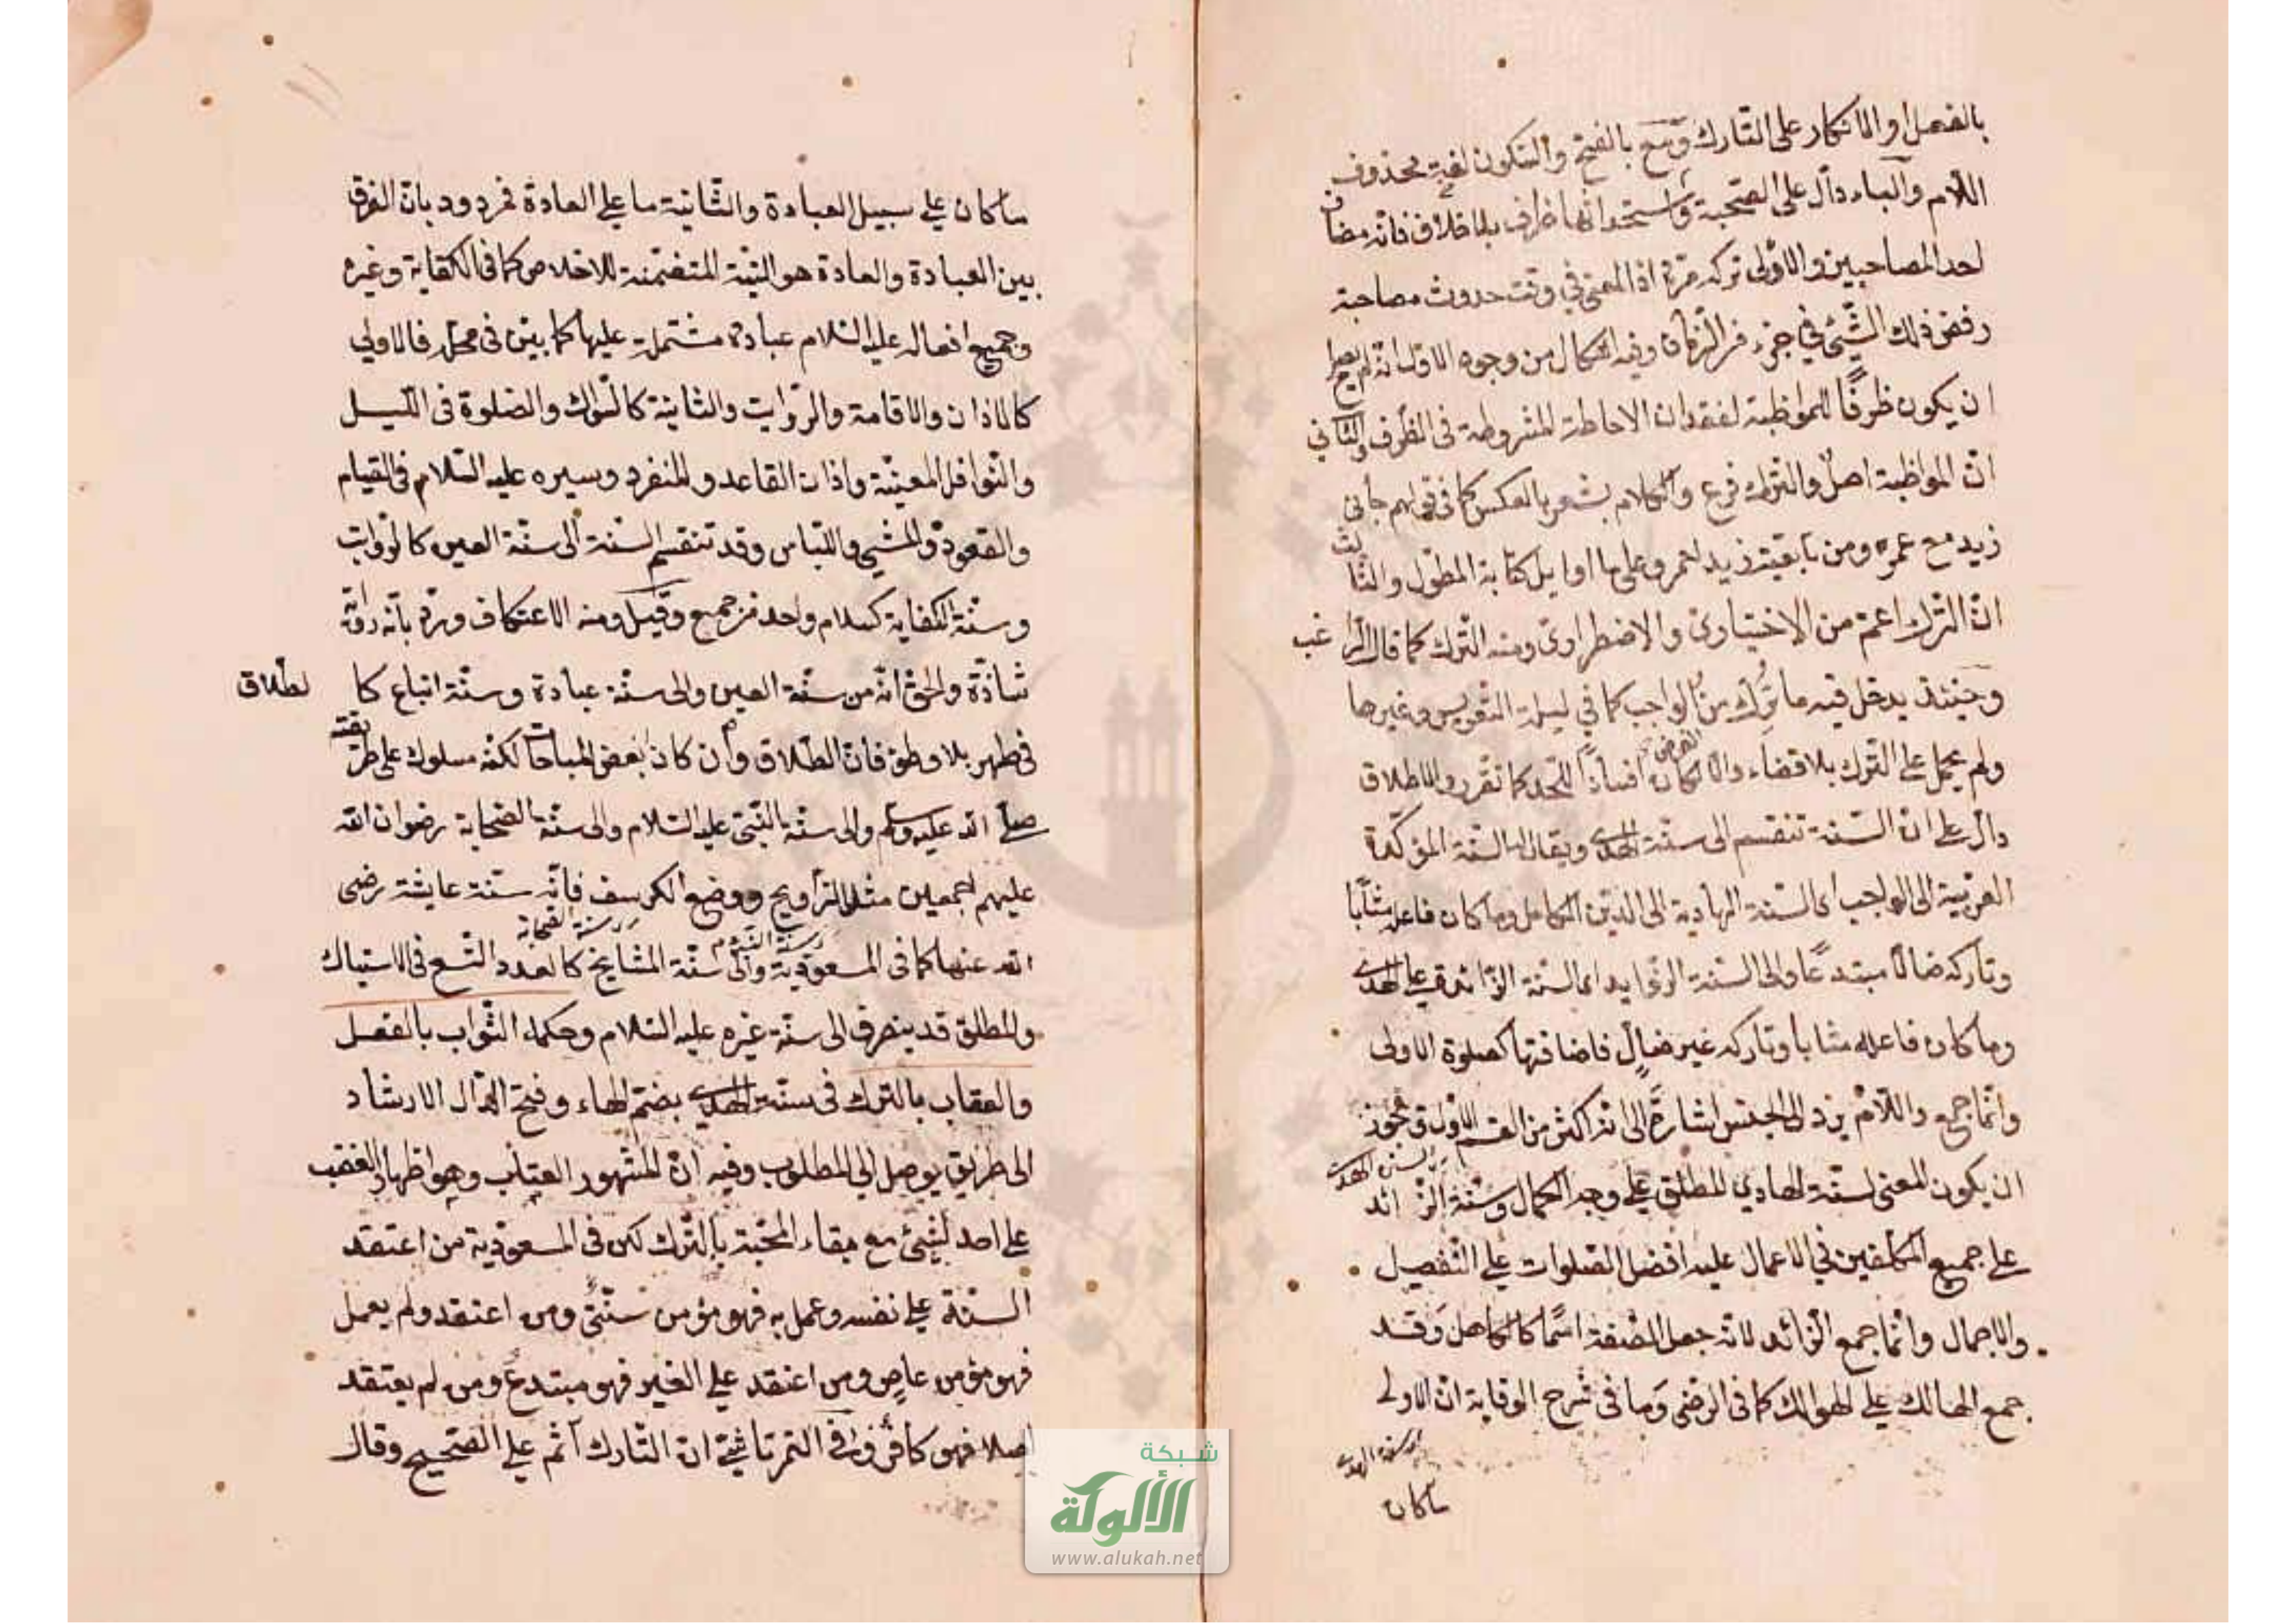 بالفعل او الانكار على التارك ومع بالفتح والسكون لغية محذوف
اللام والباء دال على الصحبة واستحداثها ظرف بلا خلاف فانه مضاف
لاحد المصاحبين والاولى تركه مرة اذ المعنى في وقت حدوث مصاحبة
رفض ذلك الشيء في جزء من الزمان وفيه اشكال من وجوه الاول انه لم يصلح
ان يكون ظرفًا للمواظبة لفقدان الاحاطة المشروطة في الظرف والثاني
ان المواظبة اصل والترك فرع والكلام يشعر بالعكس كما في قولهم جاءني
زيد مع عمرو ومن تابعية زيد لعمرو على ما اوايل كتابة المطول والثالث
ان الترك اعم من الاختياري والاضطراري ومنه الترك كما قال الراغب
وحينئذ يدخل فيه ما ترك من الواجب كما في ليلة التعريس وغيرها
ولم يحمل على الترك بلا قضاء والا لكان الفرض افساداً للحد كما تقرر والاطلاق
دال على ان السنة تنقسم الى سنة الهدى ويقال لها السنة المؤكدة
القريبة الى الواجب اى السنة الهادية الى الدين الكامل وما كان فاعله مثابًا
وتاركه ضالًا مبتدعًا والى السنة الزوايد اى السنة الزائدة على الهدى
وما كان فاعله مثابا وتاركه غير ضال فاضافتها كصلوة الاولى
وانما جمع واللام يرد الى الجنس اشارة الى انه اكثر من القسم الاول ويجوز
ان يكون المعنى لسنة الهادي المطلق على وجه الكمال وسنة الزائد
على جميع المكلفين في الاعمال عليه افضل الصلوات على التفصيل
والاجمال وانما جمع الزائد لانه جعل الصفة اسمًا كالكاهل وقد
جمع الهالك على الهوالك كما في الرضي وما في شرح الوقاية ان الاولى
ما كان
ما كان على سبيل العبادة والثانية ما على العادة فمردود بان الفرق
بين العبادة والعادة هو النية المتضمنة للاخلاص كما في الكفاية وغيره
وجميع افعاله عليه السلام عبادة مشتملة عليها كما بين في محله فالاولى
كالاذان والاقامة والرواتب والثانية كالسواك والصلوة في الليل
والنوافل المعينة واذان القاعد والمنفرد وسيره عليه السلام في القيام
والقعود والمشي واللباس وقد تنقسم السنة الى سنة العين كالرواتب
وسنة الكفاية كسلام واحد من جميع وقيل ومنه الاعتكاف ورد بانه رواية
شاذة والحق انه من سنة العين والى سنة عبادة وسنة اتباع كالطلاق
في طهر بلا وطئ فان الطلاق وان كان بعض المباحات لكنه مسلوك على طريقته
صلى الله عليه وسلم والى سنة النبي عليه السلام والى سنة الصحابة رضوان الله
عليهم اجمعين مثل التراويح ووضع الكرسف فانه سنة عايشة رضي
سنة الصحابة
الله عنها كما في المسعودية والى سنة المشايخ كالعدد التسع في الاستياك
والمطلق قد ينصرف الى سنة غيره عليه السلام وحكمها الثواب بالفعل
والعقاب بالترك في سنتين الهدى بضم الهاء وفتح الدال الارشاد
الى طريق يوصل الى المطلوب وفيه ان المشهور العتاب وهو اظهار الغضب
على احد لشيء مع بقاء المحبة بالترك لكن في المسعودية من اعتقد
السنة على نفسه وعمل به فهو مؤمن سني ومن اعتقد ولم يعمل
فهو مؤمن عاص ومن اعتقد على الغير فهو مبتدع ومن لم يعتقد
اصلا فهو كافر وفي التمرتاشي ان التارك آثم على الصحيح وقال
شبكة
الألوكة
www.alukah.net